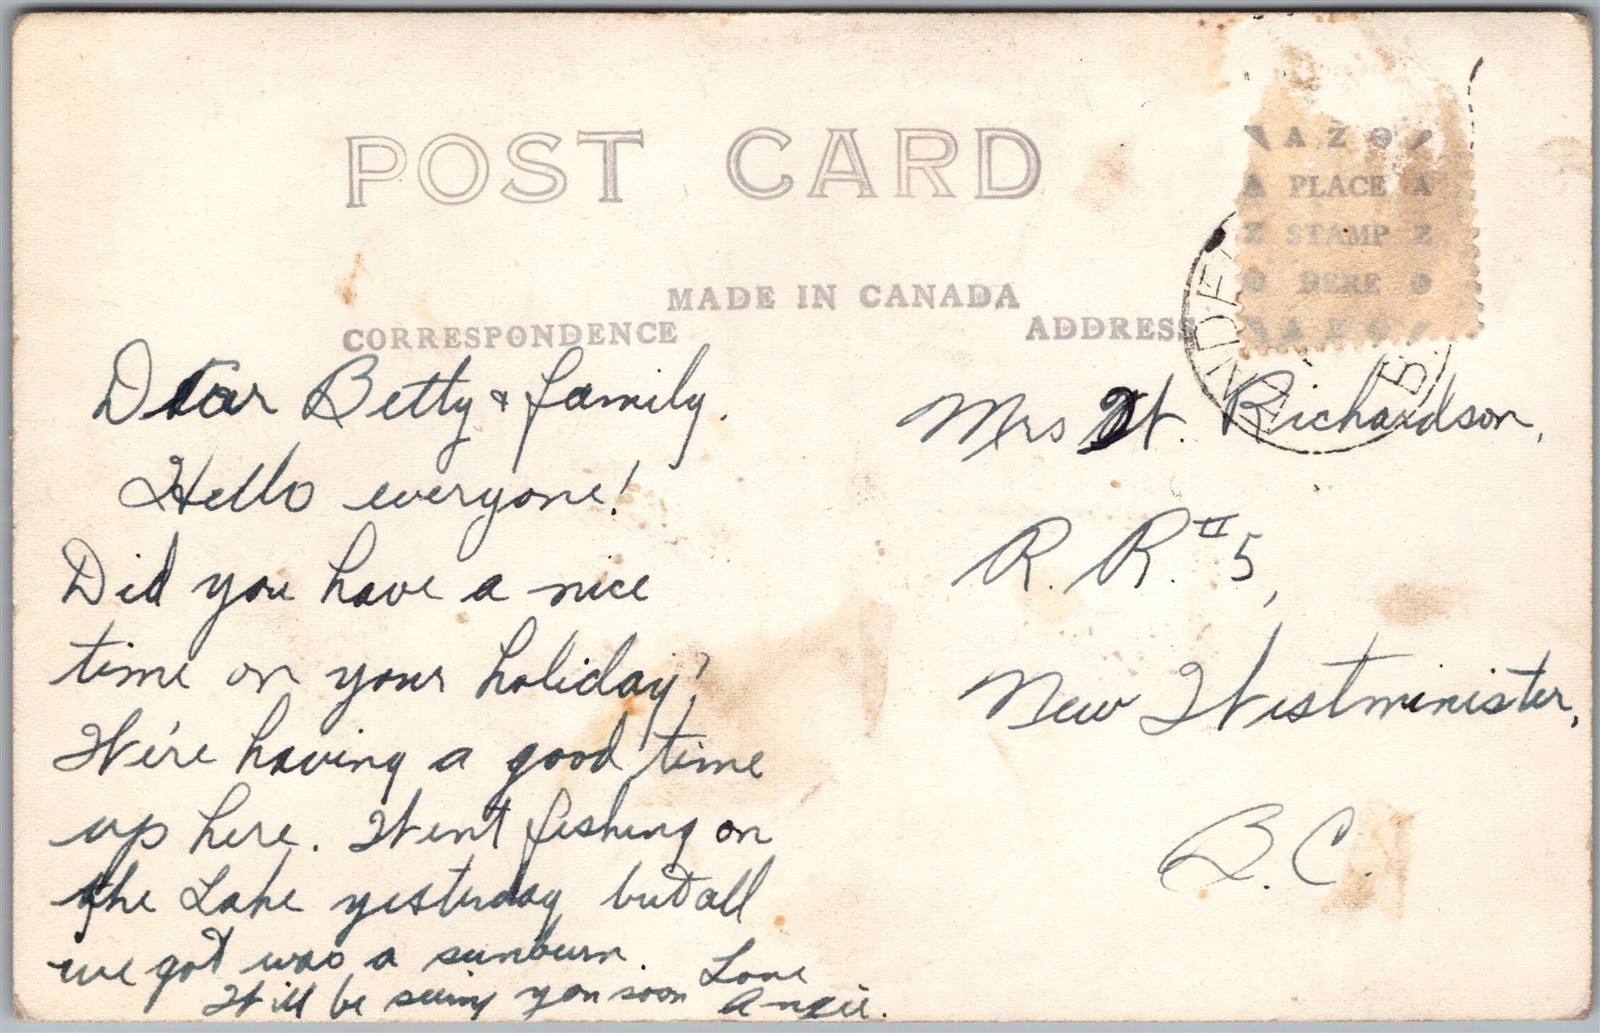 POST CARD
MADE IN CANADA
CORRESPONDENCE
ADDRESS
AZO
A PLACE A
Z STAMP Z
O HERE O
AZO
NDE
B.
Dear Betty & family.
Hello everyone!
Did you have a nice
time on your holiday?
We're having a good time
up here. Went fishing on
the Lake yesterday but all
we got was a sunburn.
Will be seeing you soon
Love
Angie.
Mrs W. Richardson,
R. R. # 5,
New Westminister,
B.C.